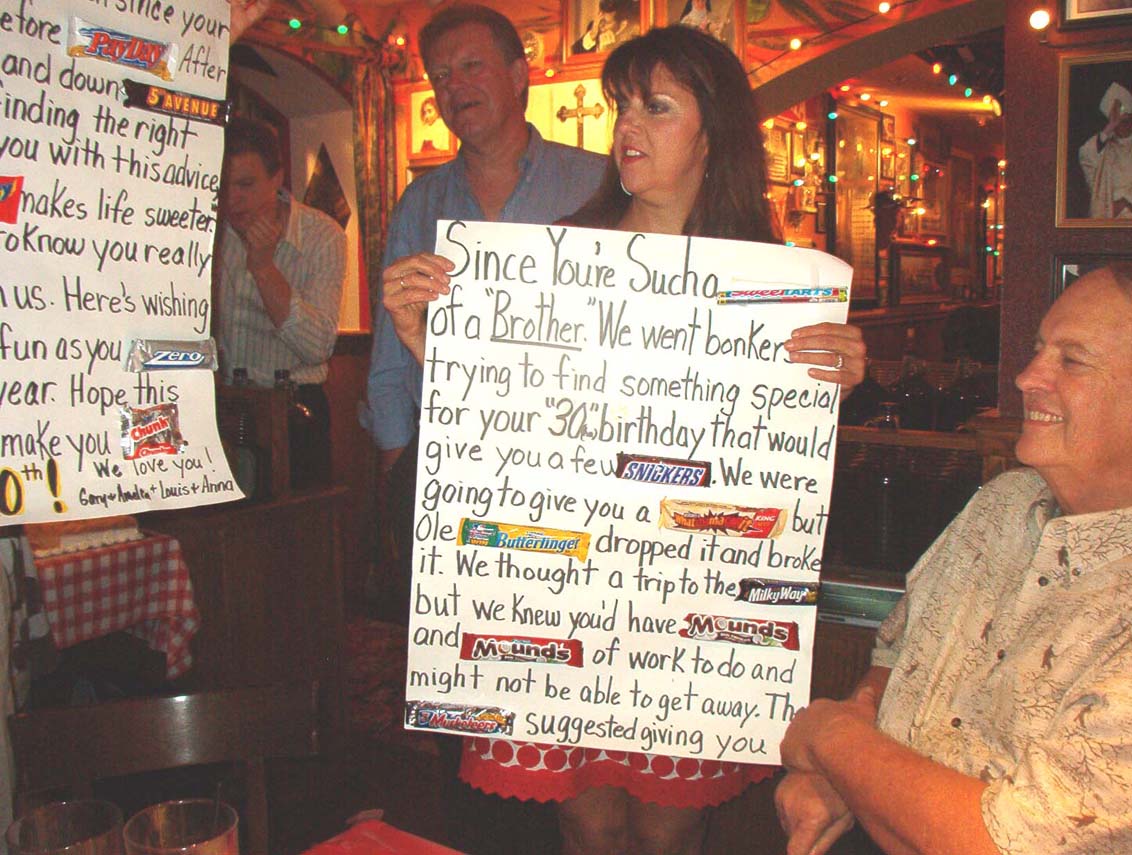 since your
efore PayDay After
and down 5th AVENUE
inding the right
you with this advice,
makes life sweeter.
to know you really
us. Here's wishing
fun as you Zero
year. Hope this
make you Chunky
0th! We love you!
Gary + Amelia + Louis + Anna
Since You're Such a SweeTARTS
of a "Brother." We went bonkers
trying to find something special
for your "30"birthday that would
give you a few SNICKERS. We were
going to give you a whatchamacallit KING but
Ole Butterfinger dropped it and broke
it. We thought a trip to the Milky Way
but we knew you'd have Mounds
and Mounds of work to do and
might not be able to get away. Th
3 Musketeers suggested giving you